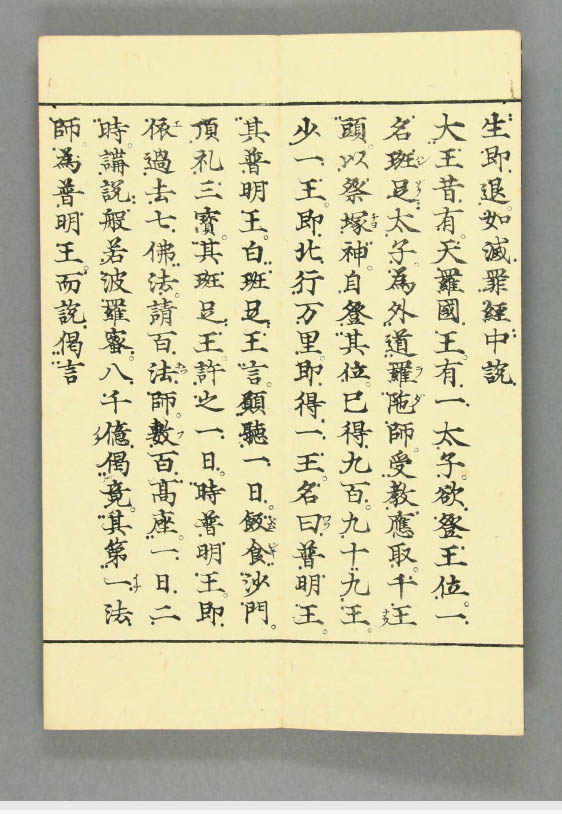 生即退如滅罪經中説
大王昔有天羅國王有一太子欲登王位一
名班足太子為外道羅陁師受教應取千王
頭以祭塚神自登其位已得九百九十九王
少一王即北行万里即得一王名曰普明王
其普明王白班足王言願聽一日飯食沙門
頂礼三寳其班足王許之一日時普明王即
依過去七佛法請百法師敷百髙座一日二
時講説般若波羅蜜八千億偈竟其第一法
師為普明王而説偈言